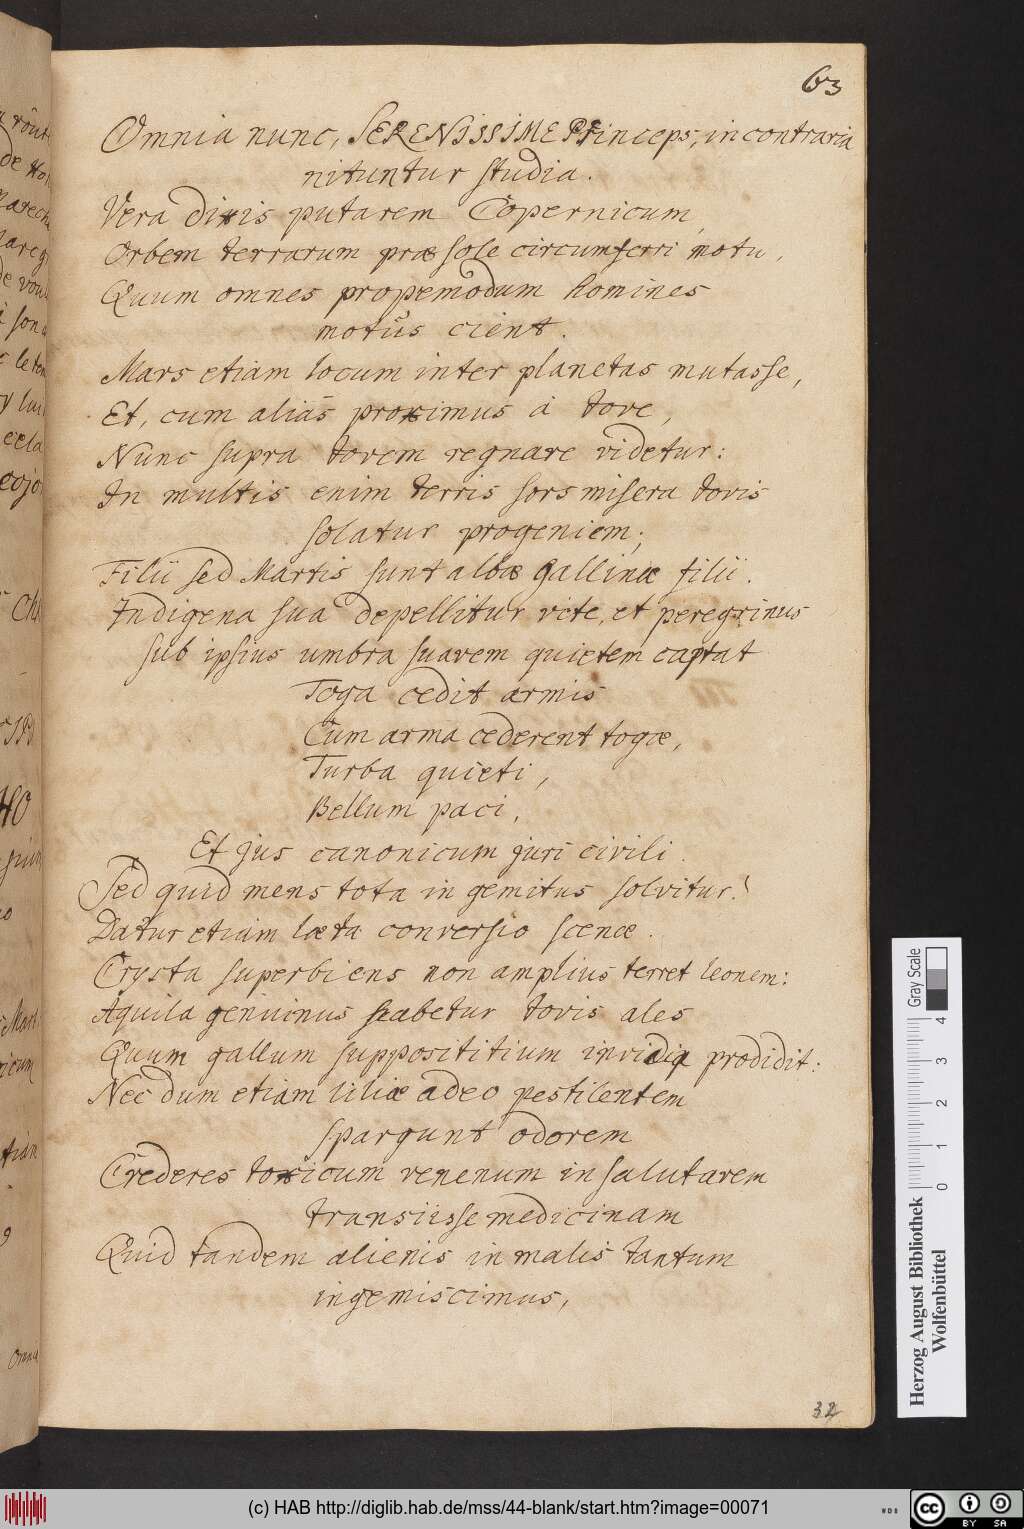 63
Omnia nunc, SERENISSIME Princeps, in contraria
nituntur studia.
Vera dixis putarem Copernicum,
Orbem terrarum præ sole circumferri motu,
Quum omnes propemodum homines
motûs cient.
Mars etiam locum inter planetas mutasse,
Et, cum aliàs proximus à Iove,
Nunc supra Iovem regnare videtur:
In multis enim terris sors misera Iovis
solatur progeniem;
Filii sed Martis sunt albæ Gallinæ filii.
Indigena sua depellitur vite, et peregrinus
sub ipsius umbra suavem quietem captat
Toga cedit armis
Cum arma cederent togæ,
Turba quieti,
Bellum paci,
Et jus canonicum juri civili.
Sed quid mens tota in gemitus solvitur?
Datur etiam læta conversio scenæ.
Crysta superbiens non amplius terret leonem:
Aquila genuinus habetur Iovis ales
Quum gallum supposititium invidia prodidit:
Nec dum etiam liliæ adeo pestilentem
spargunt odorem
Crederes toxicum venenum in salutarem
transiisse medicinam
Quid tandem alienis in malis tantum
ingemiscimus,
32
Herzog August Bibliothek
Wolfenbüttel
Gray Scale
0 1 2 3 4
(c) HAB http://diglib.hab.de/mss/44-blank/start.htm?image=00071
WDB
cc BY SA